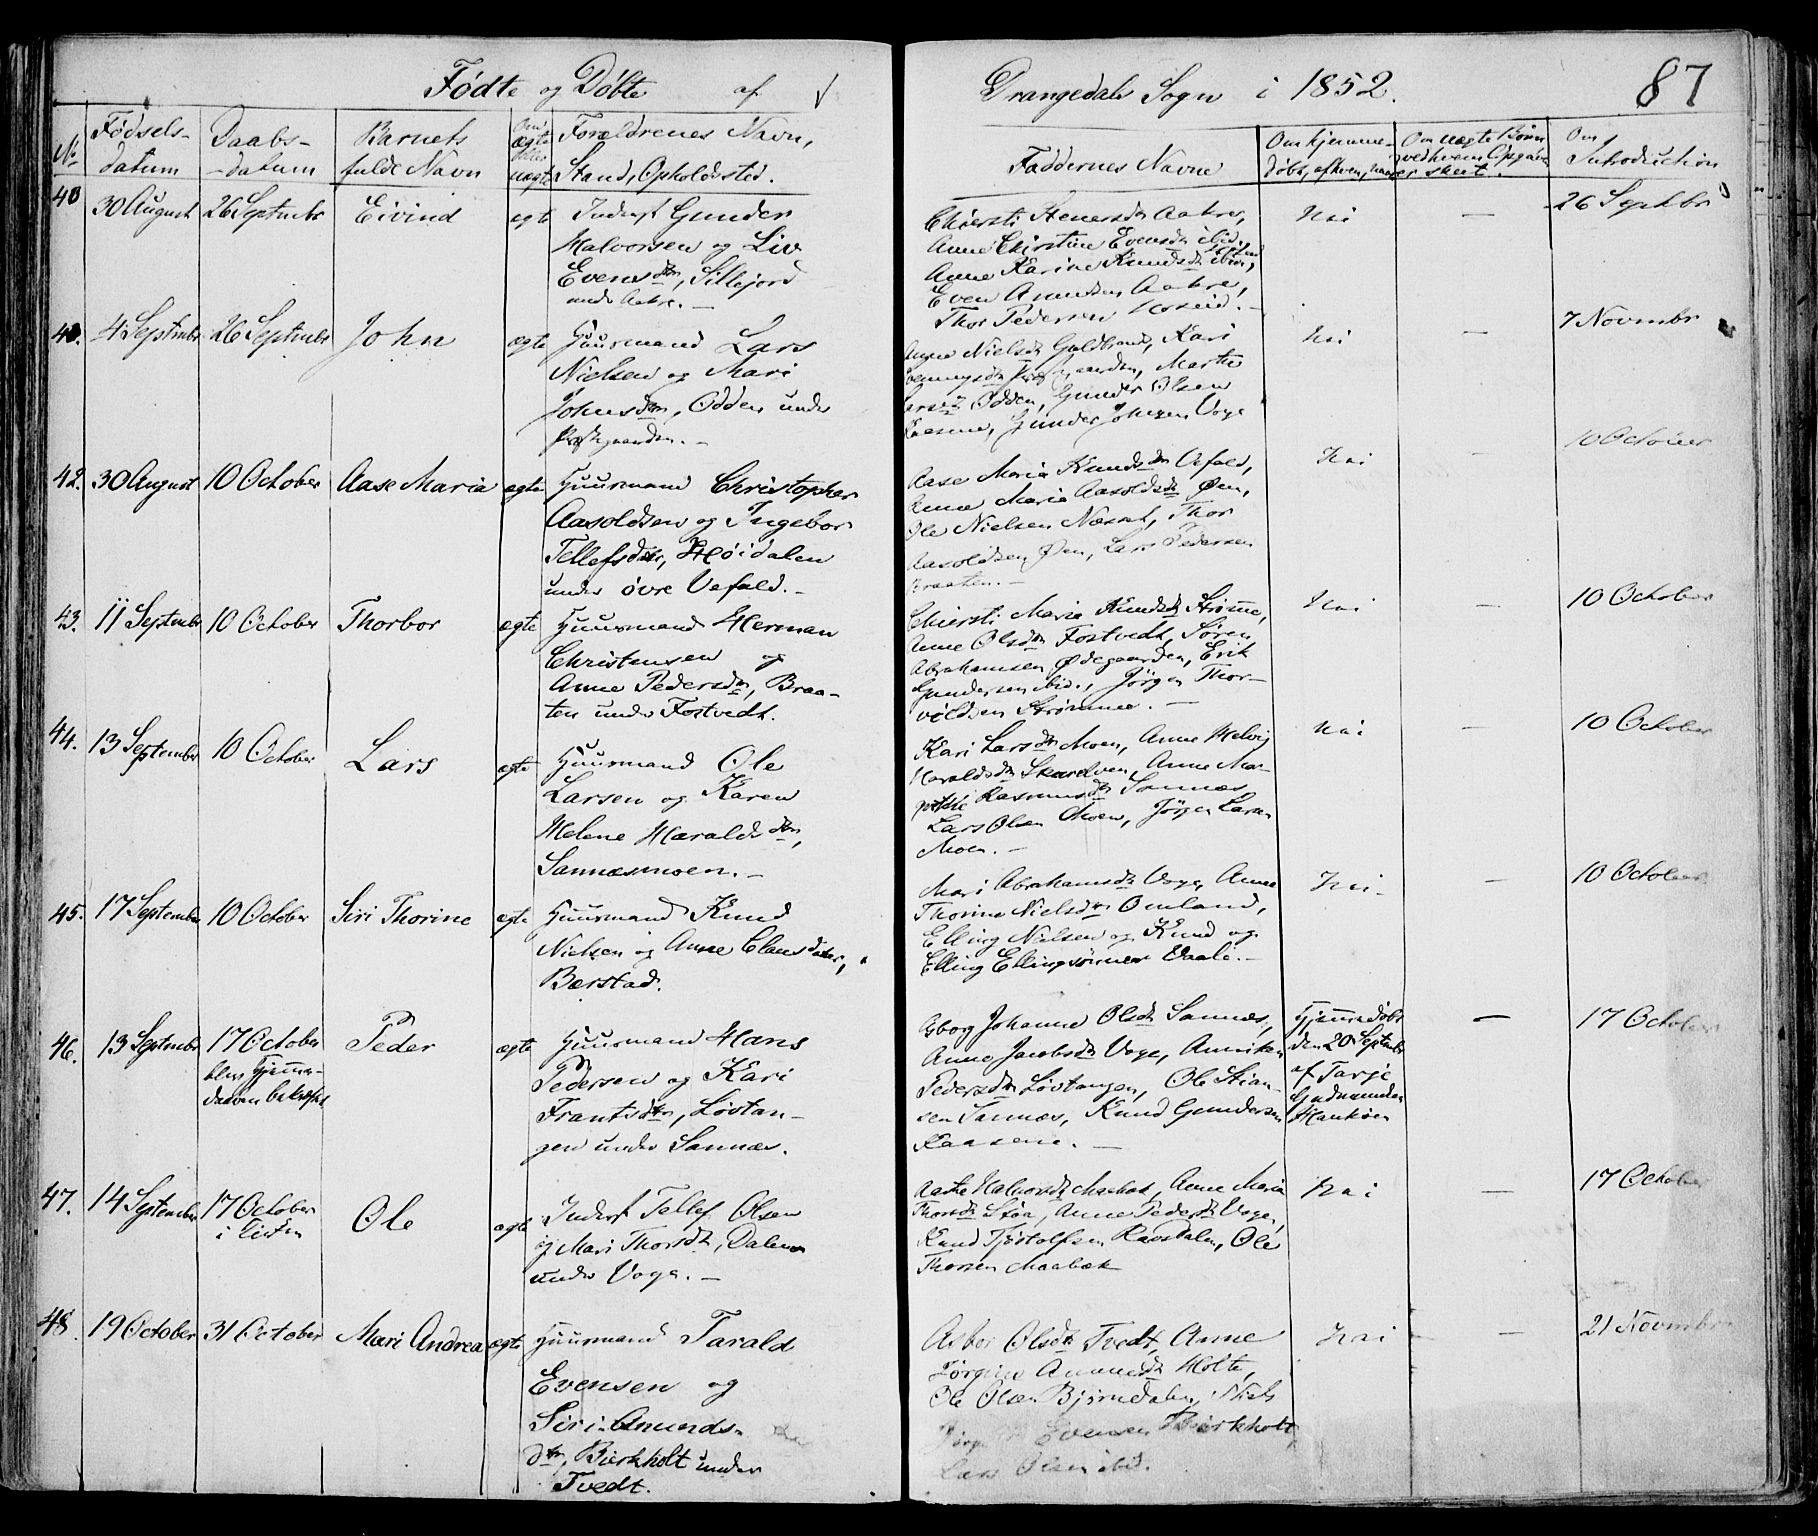 Fødte og Døbte af
Drangedals Sogn i 1852.
87
No
Fødsels-
datum
Daabs-
-datum
Barnets
fulde Navn
Om
ægte
eller
uægte
Forældrenes Navn,
Stand, Opholdssted.
Faddernes Navne
Om hjemme-
døbt, af hvem, naar
Om uægte Børn
ved hvem Opgave
er skeet.
Om
Introduction
40
30 August
26 Septembr
Eivind
egte
Inderst Gunder
Halvorsen og Liv
Evensdtr, Sillejord
under Aakre.-
Chiersti Stenersdtr Aakre,
Anne Chirstine Evensdtr ibid.
Anne Karine Knudsdtr
Even Amundsen Aakre,
Thor Pedersen
Nei
—
26 Septbr
4 Septembr
26 Septembr
John
ægte
Huusmand Lars
Nielsen og Mari
Johnsdtr, Odden under
Præstegaarden.-
Anne Nielsdtr Guldbrands, Kari
Præstegaarden, Marthe
Larsdtr Odden, Gunder Olsen
Kaasene, Gunder Johnsen Voge
Nei
—
7 Novembr
42.
30 August
10 October
Aase Maria
ægte
Huusmand Christopher
Aasoldsen og Ingebor
Tellefsdtr, Høidalen
under øvre Vefald.-
Aase Maria Knudsdtr Vefald,
Anne Maria Aasoldsdtr Øen,
Ole Nielsen Næset, Thor
Aasoldsen Øen, Lars Pedersen
Braaten.-
Nei
-
10 October
43.
11 Septembr
10 October
Thorbor
ægte
Huusmand Herman
Christensen og
Anne Pedersdtr, Braa-
ten under Fostvedt.
Chiersti Maria Knudsdtr Strømme,
Anne Olsdtr Fostvedt, Søren
Abrahamsen Ødegaarden, Erik
Gundersen ibid., Jørgen Thor-
voldsen Strømme.-
Nei
—
10 October
44.
13 September
10 October
Lars
ægte
Huusmand Ole
Larsen og Karen
Helene Haraldsdtr,
Sannæsmoen.-
Kari Larsdtr Moen, Anne Helvig
Haraldsdtr Skarelven, Anne Mar-
grethe Rasmusdtr Sannæs
Lars Olsen Moen, Jørgen Larsen
Moen.-
Nei
—
10 October
45.
17 September
10 October
Siri Thorine
ægte
Huusmand Knud
Nielsen og Anne Clausdatter,
Bærstad.
Mari Abrahamsdtr Voge, Anne
Thorine Nielsdtr Omland,
Elling Nielsen og Knud og
Elling Ellingsønner Vaale.-
Nei
—
10 October
46.
13 Septembr
17 October
blev Hjemme-
daaben bekræftet
Peder
ægte
Huusmand Hans
Pedersen og Kari
Frantsdtr, Løstan-
gen under Sannæs.
Asborg Johanne Olsdtr Sannæs,
Anne Jacobsdtr Voge, Anniken
Pedersdtr Løvtangen, Ole Stian-
sen Sannæs, Knud Gundersen
Kaasene.-
Hjemmedøbt
den 20 Septembr
af Tarje
Gudmundsen
—
17 October
47.
14 September
17 October
i Kirken
Ole
ægte
Inderst Tellef Olsen
og Mari Thorsdtr, Dalen
under Voge.-
Aaste Halvorsdtr Maabæk, Anne Maria
Thorsdtr Støa, Anne Pedersdtr Voge,
Knud Tjøstolfsen Ravsdalen, Ole
Thorsen Maabæk
Nei
—
17 October
48.
19 October
31 October
Mari Andrea
ægte
Huusmand Tarald
Evensen og
Siri Amunds-
dtr, Bierkholt under
Tvedt.
Asbor Olsdtr Tvedt, Anne
Jørgine Amundsdtr Holte,
Ole Olsen Bjørndalen, Niels
Evensen Birkholt,
Lars Olsen ibid.
Nei
—
21 Novmbr